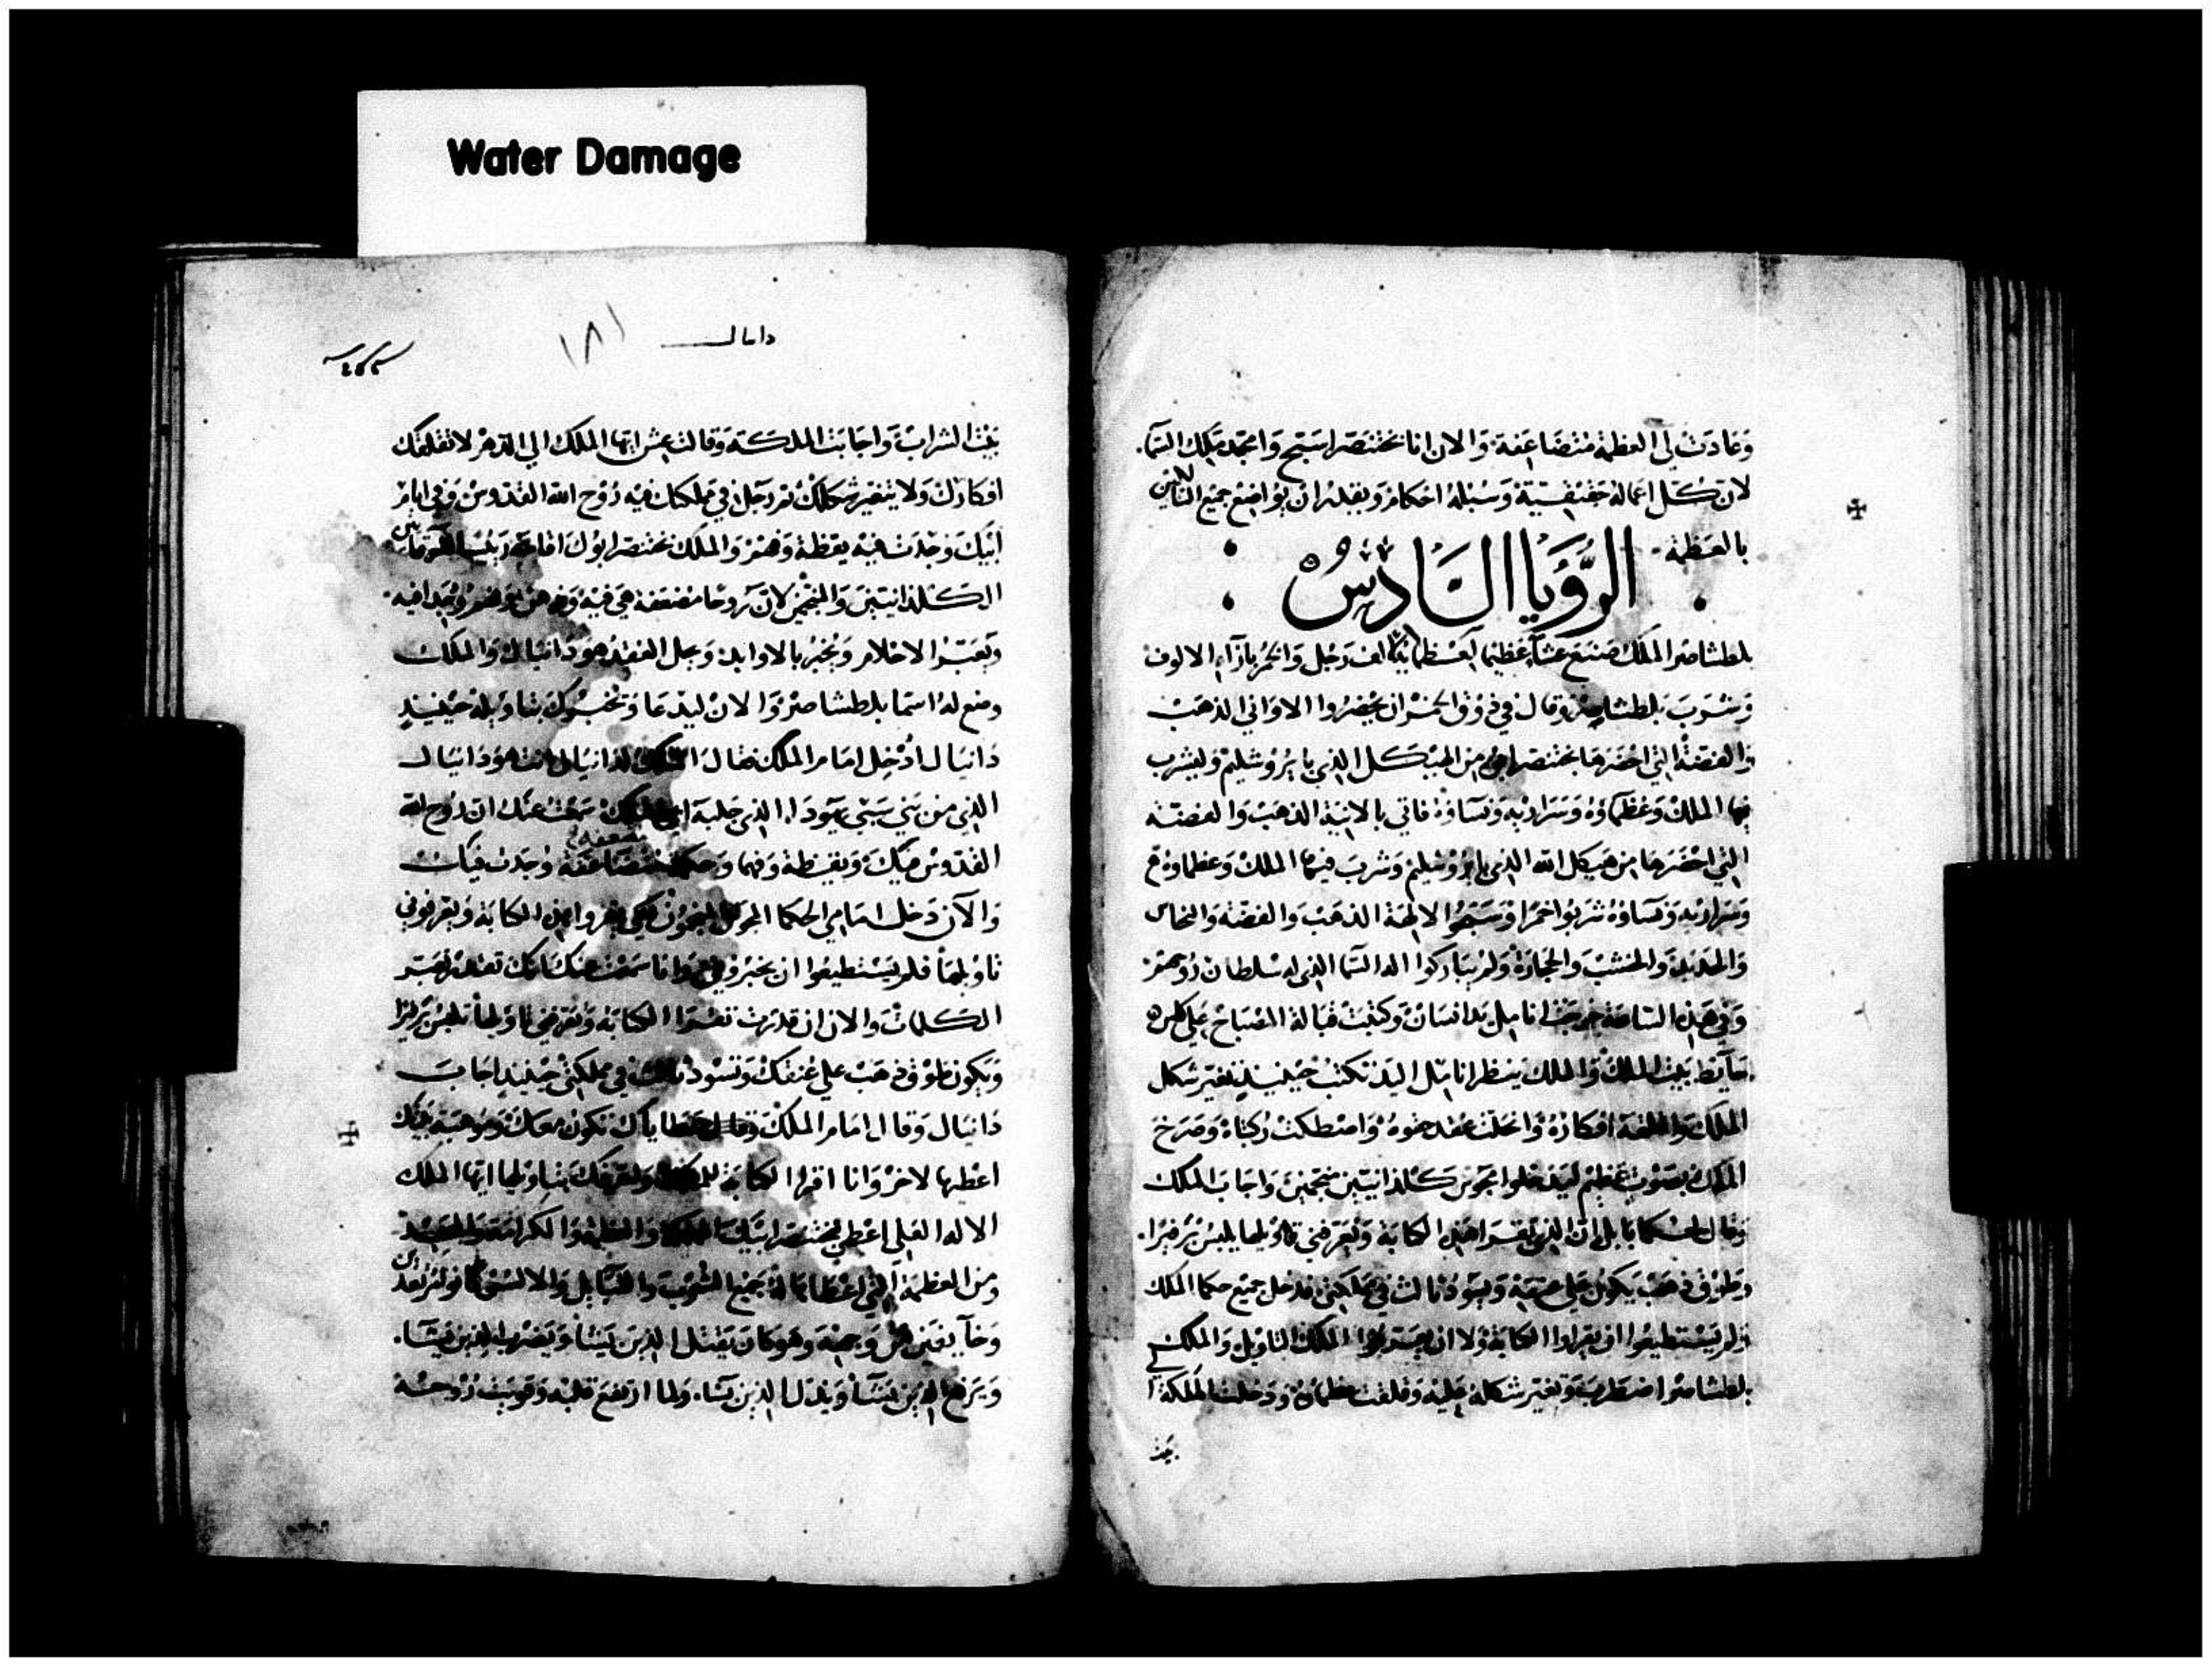 Water Damage
وعادت لي العظمة متضاعفة والان انا بختنصر اسبح وامجد ملك السما.
لان كل اعماله حقيقية وسبله احكام ويقدر ان يواضع جميع السالكين
بالعظمة
الرؤيا السادس
بلطشاصر الملك صنع عشاء عظيما لعظمائه الف رجل والخمر بازاء الالوف
وشرب بلطشاصر وقال في ذوق الخمر ان يحضروا الاواني الذهب
والفضة التي احضرها بختنصر ابوه من الهيكل الذي بايروشليم وليشرب
بها الملك وعظماؤه وسراريه ونساؤه فاتي بالانية الذهب والفضة
التي احضرها من هيكل الله الذي بايروشليم وشرب فيها الملك وعظماوه
وسراريه ونساؤه شربوا خمرا وسبحوا الالهة الذهب والفضة والنحاس
والحديد والخشب والحجارة ولم يباركوا اله السما الذي له سلطان روحهم
وفي هذه الساعة خرجت انامل يد انسان وكتبت قبالة المصباح علي كلس
حايط بيت الملك والملك ينظر انامل اليد تكتب حينيذ تغير شكل
الملك واقلقته افكاره وانحلت عقد حقوه واصطكت ركبتاه وصرخ
الملك بصوت عظيم ليدخلوا مجوس كلدانيين منجمين واجاب الملك
وقال لحكما بابل ان الذي يقرا هذه الكتابة ويعرفني تاويلها يلبس برفيرا.
وطوق ذهب يكون علي عنقه ويسود ثالث في مملكتي فدخل جميع حكما الملك
ولم يستطيعوا ان يقراوا الكتابة ولا ان الملك التاويل والملك
بلطشاصر اضطرب وتغير شكله عليه وقلقت عظماؤه ودخلت الملكة
بيت
دانيال
١٨١
بيت الشراب واجابت الملكة وقالت عش ايها الملك الي الدهر لا تقلقك
افكارك ولا يتغير شكلك رجل في مملكتك فيه روح الله القدوس وفي ايام
ابيك وجدت فيه يقظة وفهم والملك بختنصر ابوك اقامه رييسا
الكلدانيين والمنجمين لان روحا متضعفة هي فيه وفهم
وتعبير الاحلام ويخبر بالاوابد وحل العقد هو دانيال والملك
وضع له اسما بلطشاصر والان ليدعا وتخبرك بتاويله حينيذ
دانيال ادخل امام الملك فقال الملك لدانيال انت هو دانيال
الذي من بني سبي يهودا الذي جلبه ابي الملك سمعت عنك ان روح الله
القدوس فيك ويقظة وفهما وحكمة متضاعفة وجدت فيك
والآن دخل امامي الحكما المجوس المنجمون لكي يقروا هذه الكتابة ويعرفوني
تاويلها فلم يستطيعوا ان يخبروني وانا سمعت عنك انك تقدر تفسر
الكلمات والان ان قدرت تقرا الكتابة وتعرفني تاويلها تلبس برفيرا
ويكون طوق ذهب علي عنقك وتسود ثالث في مملكتي حينيذ اجاب
دانيال وقال امام الملك عطاياك تكون معك وموهبة بيتك
اعطيها لاخر وانا اقرا الكتابة للملك واعرفك بتاويلها ايها الملك
الاله العلي اعطي بختنصر ابيك والعظمة والكرامة والمجد
ومن العظمة التي اعطاها له جميع الشعوب والقبايل والالسن كانوا يرتعدون
وخايفين من وجهه وهو كان يقتل الذين يشا ويضرب الذين يشا.
ويرفع الذين يشا ويذل الذين يشا. ولما ارتفع قلبه وقويت روحه